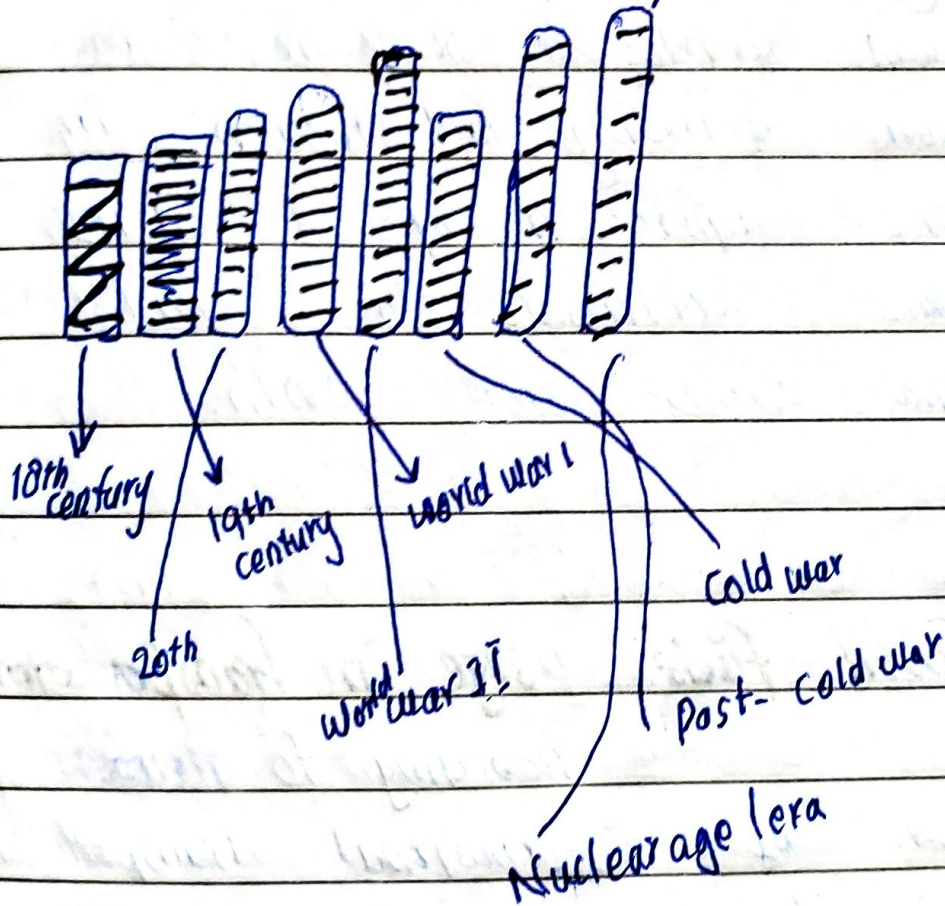 18th
century
19th
century
World war I
20th
World war II
Cold war
Post- Cold war
Nuclear age /era